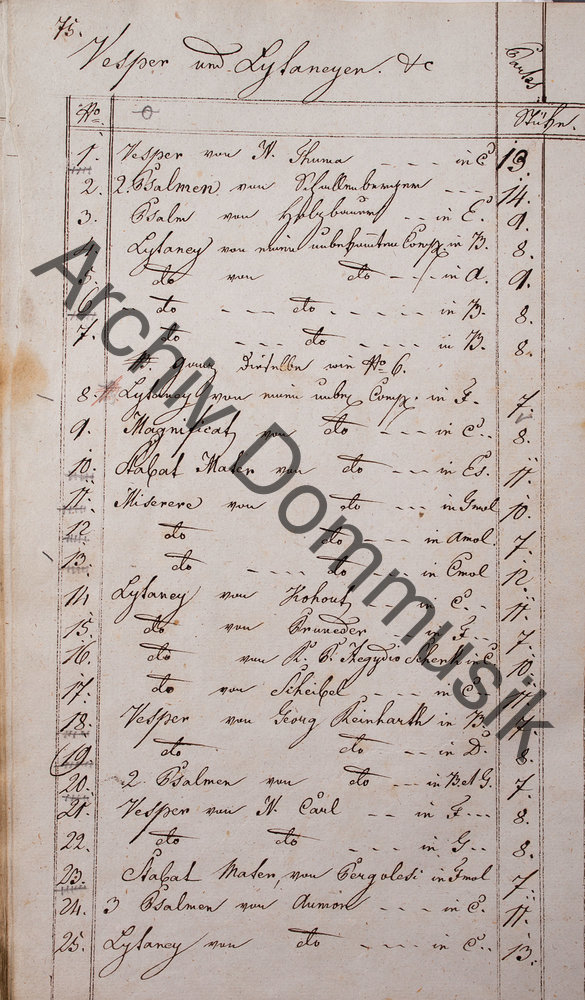 75.
Vesper und Lytaneyen. &c
Partes
No. 0 Stücke.
1. Vesper von N. Thuma - - - - in C 13
2. 2. Psalmen von Schallenberger - - - 14.
3. Psalm von Holzbauer - - in E. 9.
4. Lytaney von einem unbekannten Comp. in B. 8.
5. do von do - - - in A. 9.
6. do - - - - do - - - - in B. 8.
7. do - - - - do - - - - in B. 8.
NB. ganz dieselbe wie No 6.
8. Lytaney von einem unbek Comp. in F. 7.
9. Magnificat von do - - - in C. 8.
10. Stabat Mater von do - - - in Es. 11.
11. Miserere von do - - - in Gmol 10.
12 do do - - - in Amol 7.
13. do - - - - do - - in Cmol 12.
14 Lytaney von Kohout - - in C. 11.
15. do von Pruneder - in F - - 7.
16. do von R. P. Aegydio Schenk in C. 10.
17. do von Scheibel - - - - in C - 11.
18. Vesper von Georg Reinharth in B. 7.
19. do do - - - in D. 8.
20. 2. Psalmen von do - - in B. et G. 7.
21. Vesper von N. Carl - - in F - - - 8.
22. do do - - - in G - - 8.
23. Stabat Mater, von Pergolesi in Fmol 7.
24. 3 Psalmen von Aumon - - - - in C. 11.
25. Lytaney von do - - - - in C. 13.
Archiv Dommusik